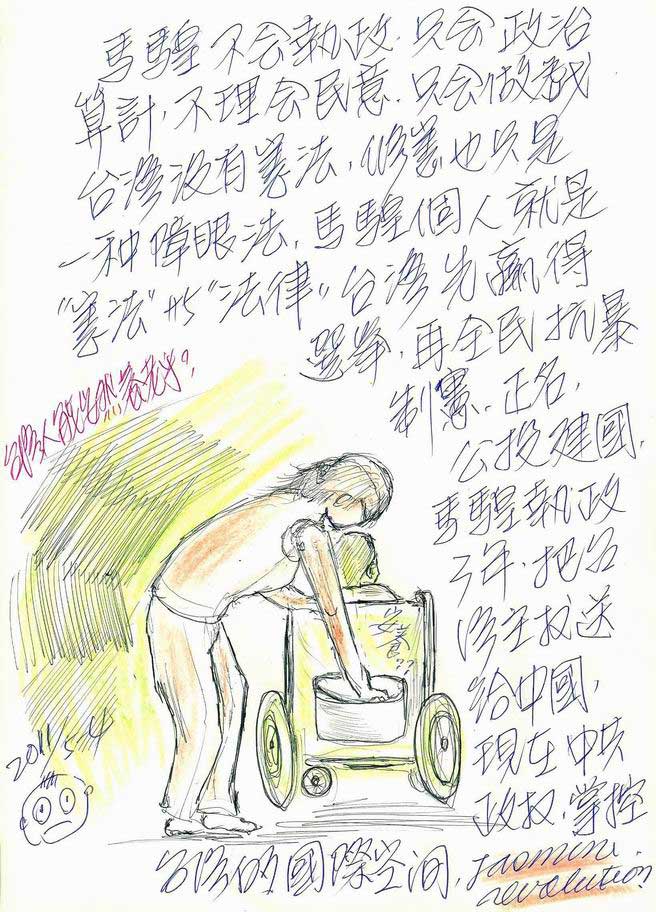 馬騜不会執政.只会政治
算計,不理会民意.只会做戲
台灣沒有憲法,修憲也只是
一种障眼法,馬騜個人就是
"憲法"與"法律"台灣先贏得
選举,再全民抗暴
制憲.正名,
公投建國.
馬騜執政
3年.把台
灣主权送
給中國,
現在中共
政权.掌控
台灣的國際空间.
Jasmine
revolution?
台灣人能安然養老乎?
安養??
2011/5-4